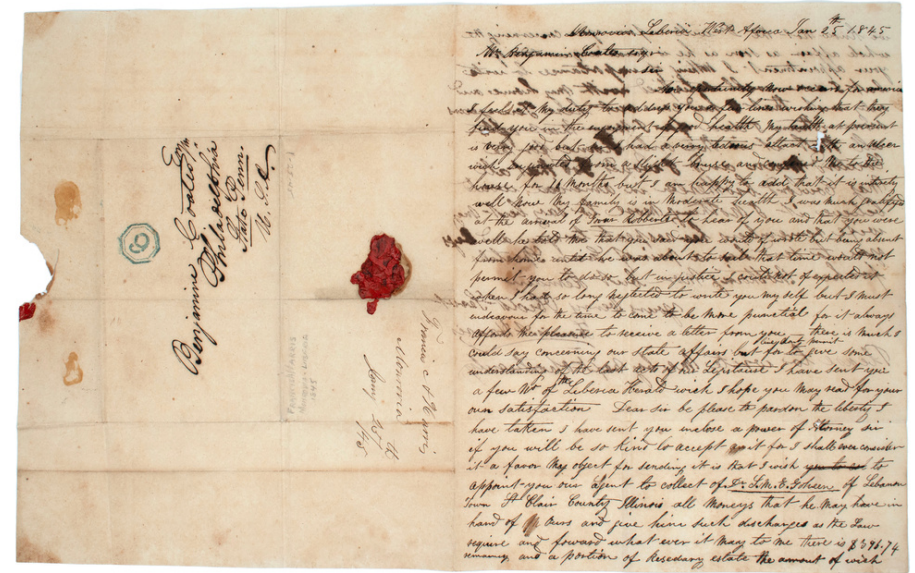 Benjamin Coates Esqr
Philadelphia
State Penn.
U.S.A.
8
Monrovia
Monrovia Liberia West Africa Jan 15th 1845
Mr. Benjamin Coates esqr
Sir
An opportunity now occurs
I feel it my duty to address you a few lines wishing that they
find you in the enjoyment of good health My health at present
is very but I had a very attack with an ulcer
and confined me to the
house for 11 Months but I am happy to add that it is entirely
well now My family is in Moderate health I was much gratified
at the arrival of to hear of you and that you were
well he told me that you would have wrote but being absent
from home until he was about to sail that time would not
permit you to do so but in justice I could not of expected it
when I had so long neglected to write you my self but I must
endeavour for the time to come to be more punctual for it always
affords me pleasure to receive a letter from you there is much I
could say concerning our state affairs but for to give some
understanding of the last acts of our Legislature I have sent you
a few Nos of the Liberia Herald wich I hope you may read for your
own satisfaction Dear sir be please to pardon the liberty I
have taken I have sent you inclose a power of Attorney sir
if you will be so kind to accept it for I shall ever consider
it a favor My object for sending it is that I wish to
appoint you our agent to collect of Dr. of Lebanon
town St Clair County Illinois all moneys that he may have in
hand of ours and give him such discharges as the Law
require and forward what ever it may to me there is $396.74
remaining and a portion of Resedary estate the amount of wich